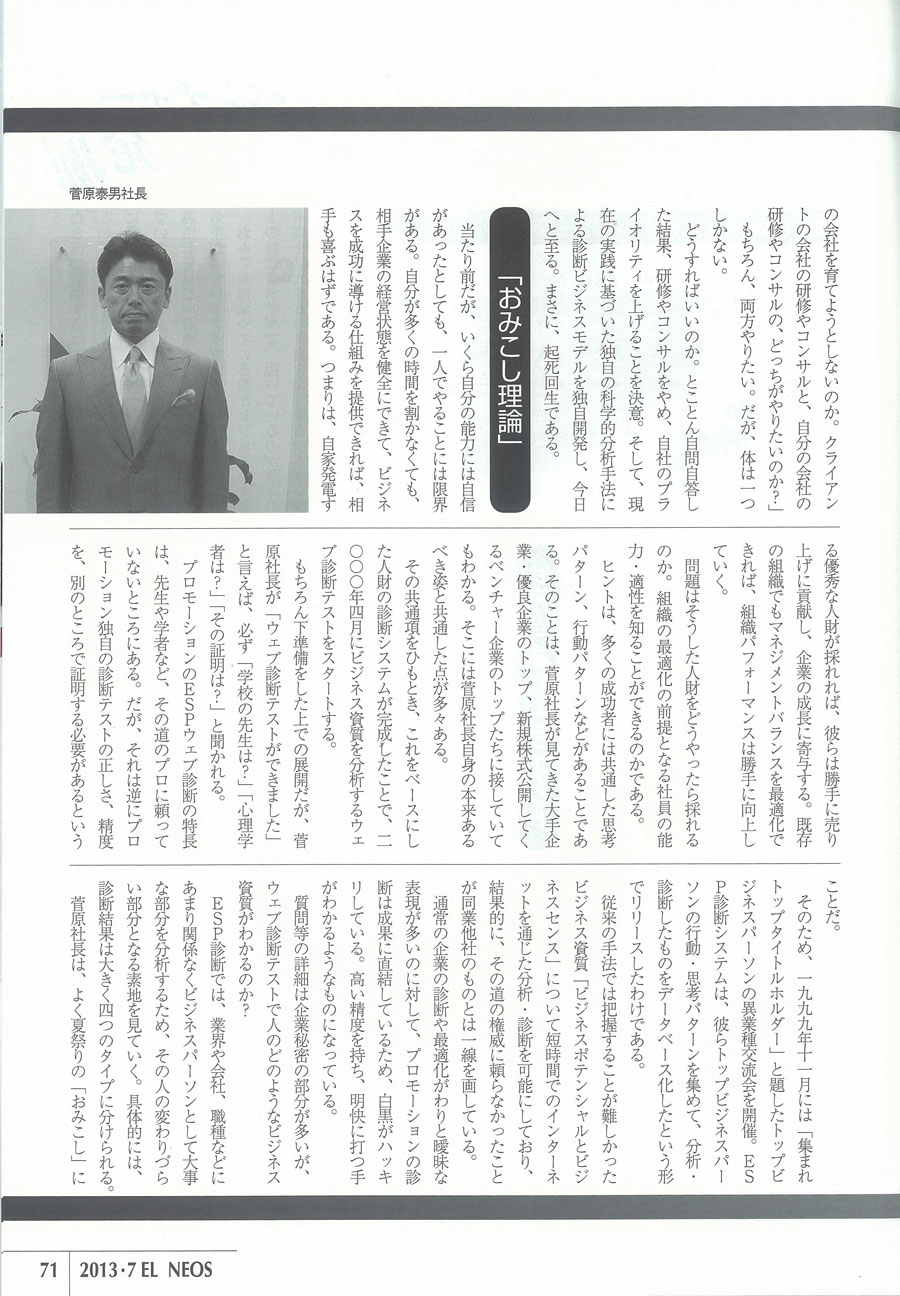 菅原泰男社長
の会社を育てようとしないのか。クライアン
トの会社の研修やコンサルと、自分の会社の
研修やコンサルの、どっちがやりたいのか?」
もちろん、両方やりたい。だが、体は一つ
しかない。
どうすればいいのか。とことん自問自答し
た結果、研修やコンサルをやめ、自社のプラ
イオリティを上げることを決意。そして、現
在の実践に基づいた独自の科学的分析手法に
よる診断ビジネスモデルを独自開発し、今日
へと至る。まさに、起死回生である。
「おみこし理論」
当たり前だが、いくら自分の能力には自信
があったとしても、一人でやることには限界
がある。自分が多くの時間を割かなくても、
相手企業の経営状態を健全にできて、ビジネ
スを成功に導ける仕組みを提供できれば、相
手も喜ぶはずである。つまりは、自家発電す
る優秀な人財が採れれば、彼らは勝手に売り
上げに貢献し、企業の成長に寄与する。既存
の組織でもマネジメントバランスを最適化で
きれば、組織パフォーマンスは勝手に向上し
ていく。
問題はそうした人財をどうやったら採れる
のか。組織の最適化の前提となる社員の能
力・適性を知ることができるのかである。
ヒントは、多くの成功者には共通した思考
パターン、行動パターンなどがあることであ
る。そのことは、菅原社長が見てきた大手企
業・優良企業のトップ、新規株式公開してく
るベンチャー企業のトップたちに接していて
もわかる。そこには菅原社長自身の本来ある
べき姿と共通した点が多々ある。
その共通項をひもとき、これをベースにし
た人財の診断システムが完成したことで、二
〇〇〇年四月にビジネス資質を分析するウェ
ブ診断テストをスタートする。
もちろん下準備をした上での展開だが、菅
原社長が「ウェブ診断テストができました」
と言えば、必ず「学校の先生は?」「心理学
者は?」「その証明は?」と聞かれる。
プロモーションのESPウェブ診断の特長
は、先生や学者など、その道のプロに頼って
いないところにある。だが、それは逆にプロ
モーション独自の診断テストの正しさ、精度
を、別のところで証明する必要があるという
ことだ。
そのため、一九九九年十一月には「集まれ
トップタイトルホルダー」と題したトップビ
ジネスパーソンの異業種交流会を開催。ES
P診断システムは、彼らトップビジネスパー
ソンの行動・思考パターンを集めて、分析・
診断したものをデータベース化したという形
でリリースしたわけである。
従来の手法では把握することが難しかった
ビジネス資質「ビジネスポテンシャルとビジ
ネスセンス」について短時間でのインターネ
ットを通じた分析・診断を可能にしており、
結果的に、その道の権威に頼らなかったこと
が同業他社のものとは一線を画している。
通常の企業の診断や最適化がわりと曖昧な
表現が多いのに対して、プロモーションの診
断は成果に直結しているため、白黒がハッキ
リしている。高い精度を持ち、明快に打つ手
がわかるようなものになっている。
質問等の詳細は企業秘密の部分が多いが、
ウェブ診断テストで人のどのようなビジネス
資質がわかるのか?
ESP診断では、業界や会社、職種などに
あまり関係なくビジネスパーソンとして大事
な部分を分析するため、その人の変わりづら
い部分となる素地を見ていく。具体的には、
診断結果は大きく四つのタイプに分けられる。
菅原社長は、よく夏祭りの「おみこし」に
71 2013・7 EL NEOS